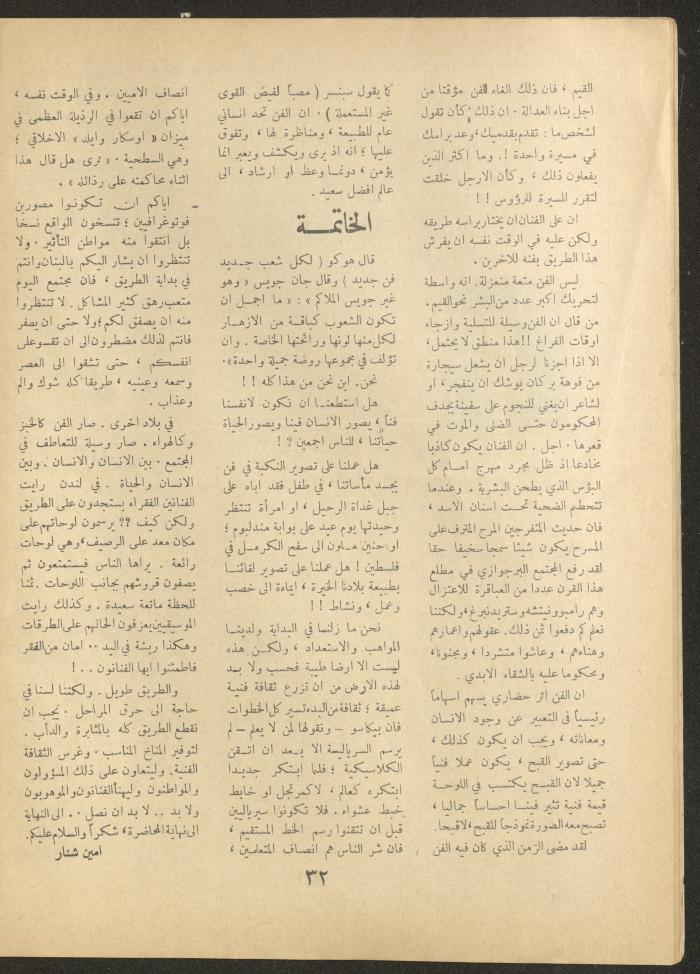 القيم ، فان ذلك الغاء للفن مؤقتا من
اجل بناء العدالة . ان ذلك كأن تقول
لشخص ما : تقدم بقدميك ، وعد براسك
في مسيرة واحدة !. وما اكثر الذين
يفعلون ذلك ، وكأن الارجل خلقت
لتقرر المسيرة للرؤوس ! !
ان على الفنان ان يختار براسه طريقه
ولكن عليه في الوقت نفسه ان يفرش
هذا الطريق بفنه للاخرين .
ليس الفن متعة منعزلة. انه واسطة
لتحريك اكبر عدد من البشر نحو القيم.
من قال ان الفن وسيلة للتسلية وازجاء
اوقات الفراغ !! هذا منطق لا يحتمل،
الا اذا اجزنا لرجل ان يشعل سيجارة
من فوهة بركان يوشك ان ينفجر، او
لشاعر ان يغني للنجوم على سفينة يجدف
المحكومون حتى الضنى والموت في
قعرها . اجل . ان الفنان يكون كاذبا
مخادعا اذ ظل مجرد مهرج امام كل
البؤس الذي يطحن البشرية . وعندما
تتحطم الضحية تحت اسنان الاسد ،
فان حديث المتفرجين المرح المترف على
المسرح يكون شيئا سمجا سخيفا حقا
لقد رفع المجتمع البرجوازي في مطلع
هذا القرن عددا من العباقرة للاعتزال
وهم رامبو ونيتشه وستريندنبرغ، ولكننا
نعلم كم دفعوا ثمن ذلك. عقولهم واعمارهم
وهناءهم ، وعاشوا متشردا ، ومجنونا،
ومحكوما عليه بالشقاء الابدي .
ان الفن اثر حضاري يسهم اسهاماً
رئيسياً في التعبير عن وجود الانسان
ومعاناته ، ويجب ان يكون كذلك ،
حتى تصوير القبح ، يكون عملا فنياً
جميلا لان القبح يكتسب في اللوحة
قيمة فنية تثير فينا احساساً جماليا ،
تصبح معه الصورة نموذجاً للقبح، لا قبحا.
لقد مضى الزمن الذي كان فيه الفن
كما يقول سبنسر ( مصباً لفيض القوى
غير المستعملة ) . ان الفن تحد انساني
عام للطبيعة ، ومناظرة لها ، وتفوق
عليها ؛ انه اذ يرى ويكشف ويعبر انما
يؤمن ، دونما وعظ او ارشاد ، الى
عالم افضل سعيد .
الخاتمة
قال هوكو ( لكل شعب جديد
فن جديد ) وقال جان جويس « وهو
غير جويس الملاكم » : « ما اجمل ان
تكون الشعوب كباقة من الازهار
لكل منها لونها ورائحتها الخاصة . وان
تؤلف في مجموعها روضة جميلة واحدة ».
نحن . اين نحن من هذا كله ! !
هل استطعنا ان نكون لانفسنا
فناً ، يصور الانسان فينا ويصور الحياة
حياتنا ، للناس اجمعين ? !
هل عملنا على تصوير النكبة في فن
يجسد مأساتنا ، في طفل فقد اباه على
جبل غداة الرحيل ، او امرأة تنتظر
وحيدتها يوم عيد على بوابة مندلبوم ؛
او حنين ملون الى سفح الكرمل في
فلسطين ! هل عملنا على تصوير لقائنا
بطبيعة بلادنا الخيرة ، ايماءة الى خصب
وعمل ، ونشاط ! !
نحن ما زلنا في البداية ولدينا
المواهب والاستعداد ، ولكن هذه
ليست الا ارضا طيبة فحسب ولا بد
لهذه الارض من ان تزرع ثقافة فنية
عميقة ؛ ثقافة من البدء تسير كل الخطوات
فان بيكاسو – ونقولها لمن لا يعلم – لم
يرسم السريالية الا بعد ان اتقن
الكلاسيكية ؛ فلما ابتكر جديدا
ابتكره كعالم ، لا كمرتجل او خابط
خبط عشواء . فلا تكونوا سيرياليين
قبل ان تتقنوا رسم الخط المستقيم ،
فان شر الناس هم انصاف المتعلمين ،
انصاف الاميين . وفي الوقت نفسه ،
اياكم ان تقعوا في الرذيلة العظمى في
ميزان « اوسكار وايلد » الاخلاقي ؛
وهي السطحية . « ترى هل قال هذا
اثناء محاكمته على رذائله » .
اياكم ان تكونوا مصورين
فوتوغرافيين ؛ تنسخون الواقع نسخا
بل انتقوا منه مواطن التأثير . ولا
تنتظروا ان يشار اليكم بالبنان وانتم
في بداية الطريق ، فان مجتمع اليوم
متعب رهق كثير المشاكل . لا تنتظروا
منه ان يصفق لكم ؛ ولا حتى ان يصفر
فانتم لذلك مضطرون الى ان تقسو على
انفسكم ، حتى تشقوا الى العصر
وسمعه وعينيه ، طريقا كله شوك والم
وعذاب .
في بلاد اخرى . صار الفن كالخبز
وكالهواء . صار وسيلة للتعاطف في
المجتمع . بين الانسان والانسان . وبين
الانسان والحياة . في لندن رايت
الفنانين الفقراء يستجدون على الطريق
ولكن كيف ?? يرسمون لوحاتهم على
مكان معد على الرصيف، وهي لوحات
رائعة . يراها الناس فيستمتعون ثم
يصفون قروشهم بجانب اللوحات . ثمنا
للحظة ماتعة سعيدة . وكذلك رايت
الموسيقيين يعزفون الحانهم على الطرقات
وهكذا ريشة في اليد .. امان من الفقر
فاطمئنوا ايها الفنانون . . !
والطريق طويل . ولكننا لسنا في
حاجة الى حرق المراحل . يجب ان
نقطع الطريق كله بالمثابرة والدأب .
لتوفير المناخ المناسب . وغرس الثقافة
الفنية. وليتعاون على ذلك المسؤولون
والمواطنون وليهنأ الفنانون والموهوبون
ولا بد .. لا بد ان نصل . . الى النهاية
الى نهاية المحاضرة ، شكراً والسلام عليكم.
امين شنار
٣٢